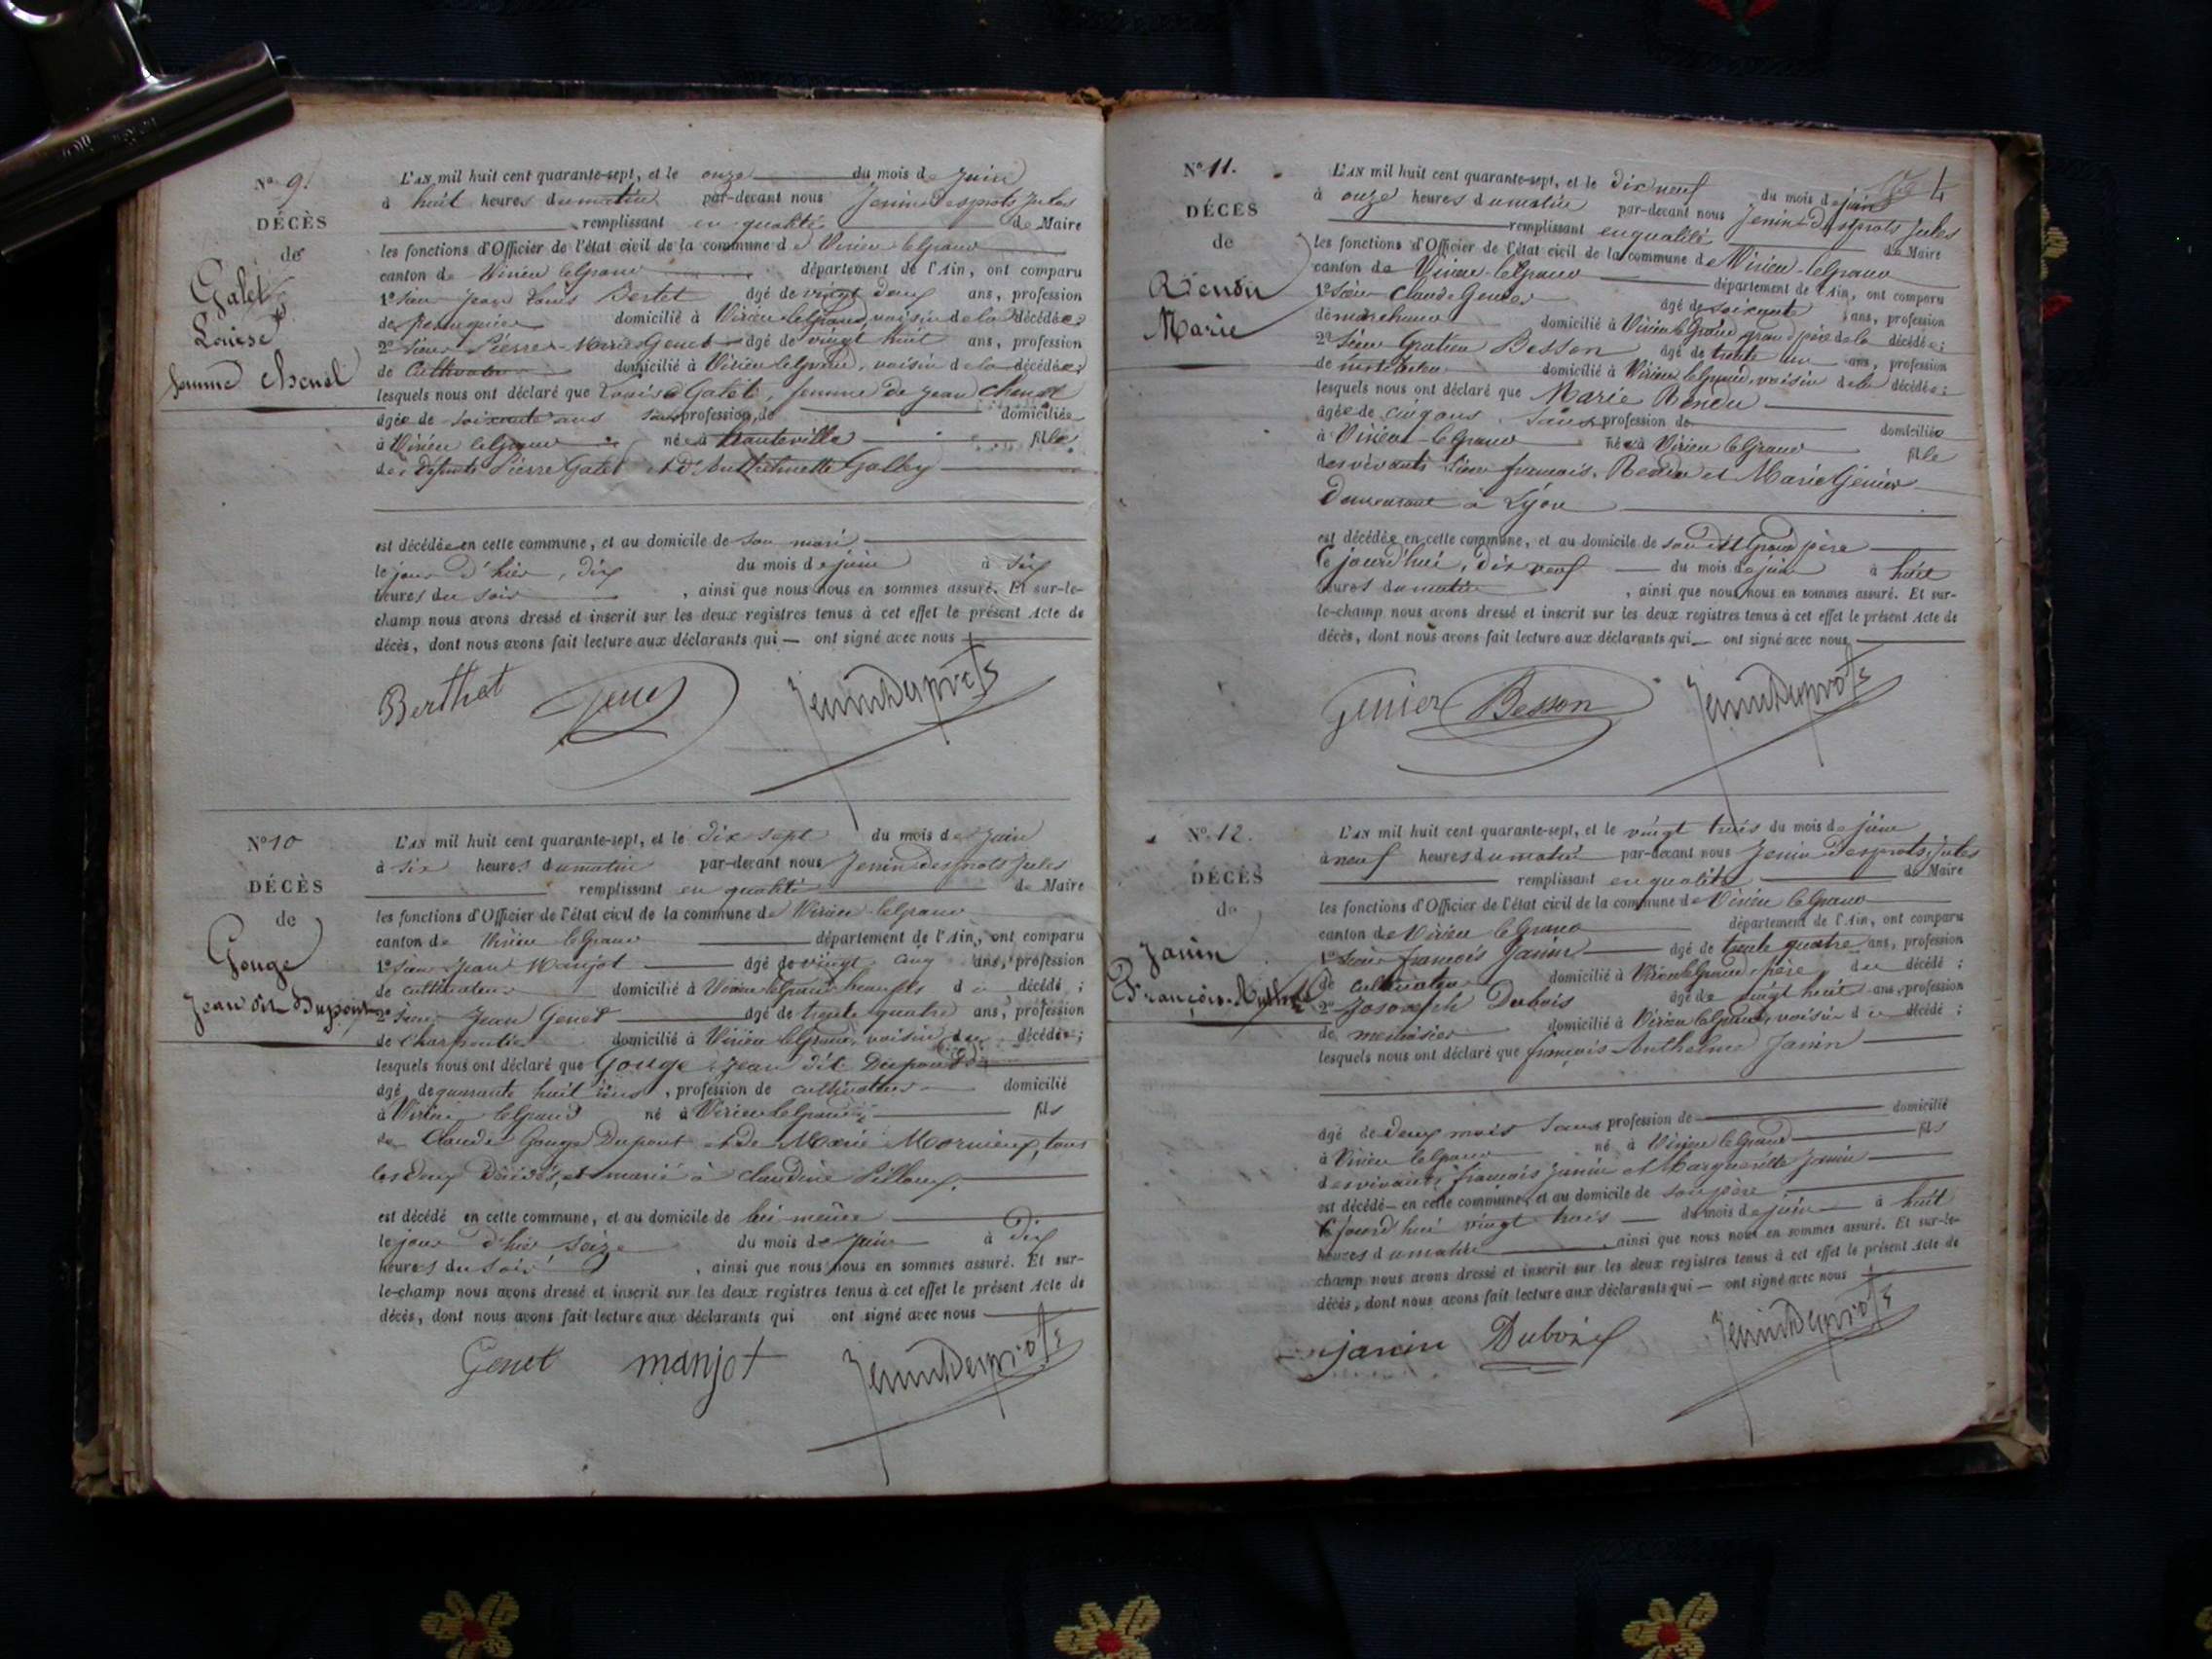 Nº 9.
DÉCÈS
de
Galet
Louise
femme Chenel
L'AN mil huit cent quarante-sept, et le onze du mois de Juin
à huit heures du matin par-devant nous Jenin Desprots Jules
remplissant en qualité de Maire
les fonctions d'Officier de l'état civil de la commune de Virieu le Grand
canton de Virieu le Grand département de l'Ain, ont comparu
1º Sieur Jean Louis Bertet âgé de vingt deux ans, profession
de perruquier domicilié à Virieu le Grand, voisin de la décédée;
2º Sieur Pierre Marie Genet âgé de vingt huit ans, profession
de Cultivateur domicilié à Virieu le Grand, voisin de la décédée;
lesquels nous ont déclaré que Louise Galet, femme de Jean Chenel
âgée de soixante ans sans profession, de domiciliée
à Virieu le Grand née à hauteville fille
de défunts Pierre Galet et d'Anthelmette Galley
est décédée en cette commune, et au domicile de son mari
le jour d'hier, dix du mois de juin à six
heures du soir, ainsi que nous nous en sommes assuré. Et sur-le-
champ nous avons dressé et inscrit sur les deux registres tenus à cet effet le présent Acte de
décès, dont nous avons fait lecture aux déclarants qui ont signé avec nous
Berthet Genet JeninDesprots
Nº 10
DÉCÈS
de
Gouge
Jean dit Dupont
L'AN mil huit cent quarante-sept, et le dix sept du mois de Juin
à six heures du matin par-devant nous Jenin Desprots Jules
remplissant en qualité de Maire
les fonctions d'Officier de l'état civil de la commune de Virieu le Grand
canton de Virieu le Grand département de l'Ain, ont comparu
1º Sieur Jean Manjot âgé de vingt cinq ans, profession
de cultivateur domicilié à Virieu le Grand beaufils du décédé;
2º Sieur Jean Genet âgé de trente quatre ans, profession
de Charpentier domicilié à Virieu le Grand, voisin du décédé;
lesquels nous ont déclaré que Gouge Jean dit Dupont
âgé de quarante huit ans, profession de cultivateur domicilié
à Virieu le Grand né à Virieu le Grand fils
de Claude Gouge Dupont et de Marie Mornieux, tous
les deux décédés, et marié à Claudine Pilloux.
est décédé en cette commune, et au domicile de lui même
le jour d'hier, seize du mois de juin à dix
heures du soir, ainsi que nous nous en sommes assuré. Et sur-
le-champ nous avons dressé et inscrit sur les deux registres tenus à cet effet le présent Acte de
décès, dont nous avons fait lecture aux déclarants qui ont signé avec nous
Genet manjot JeninDesprots
4
Nº 11.
DÉCÈS
de
Rendu
Marie
L'AN mil huit cent quarante-sept, et le dix neuf du mois de juin
à onze heures du matin par-devant nous Jenin Desprots Jules
remplissant en qualité de Maire
les fonctions d'Officier de l'état civil de la commune de Virieu-le Grand
canton de Virieu-le Grand département de l'Ain, ont comparu
1º Sieur Claude Genier âgé de soixante ans, profession
de marchand domicilié à Virieu le Grand grand père de la décédée;
2º Sieur Gratien Besson âgé de trente un ans, profession
de instituteur domicilié à Virieu le Grand, voisin de la décédée;
lesquels nous ont déclaré que Marie Rendu
âgée de cinq ans sans profession de domiciliée
à Virieu-le Grand née à Virieu le Grand fille
des vivants Sieur françois Rendu et Marie Genier
Demeurant à Lyon
est décédée en cette commune, et au domicile de son dit Grand père
Ce jourd'hui, dix neuf du mois de juin à huit
heures du matin, ainsi que nous nous en sommes assuré. Et sur-
le-champ nous avons dressé et inscrit sur les deux registres tenus à cet effet le présent Acte de
décès, dont nous avons fait lecture aux déclarants qui ont signé avec nous
Genier Besson JeninDesprots
Nº 12.
DÉCÈS
de
Janin
François-Anthelme
L'AN mil huit cent quarante-sept, et le vingt trois du mois de juin
à neuf heures du matin par-devant nous Jenin Desprots, Jules
remplissant en qualité de Maire
les fonctions d'Officier de l'état civil de la commune de Virieu le Grand
canton de Virieu le Grand département de l'Ain, ont comparu
1º Sieur françois Janin âgé de trente quatre ans, profession
de cultivateur domicilié à Virieu le Grand, père du décédé;
2º Joseph Dubois âgé de vingt huit ans, profession
de menuisier domicilié à Virieu le Grand, voisin du décédé;
lesquels nous ont déclaré que françois Anthelme Janin
âgé de deux mois sans profession de domicilié
à Virieu le Grand né à Virieu le Grand fils
des vivants françois Janin et Marguerite Janin
est décédé en cette commune, et au domicile de son père
Ce jourd'hui vingt trois du mois de juin à huit
heures du matin, ainsi que nous nous en sommes assuré. Et sur-le-
champ nous avons dressé et inscrit sur les deux registres tenus à cet effet le présent Acte de
décès, dont nous avons fait lecture aux déclarants qui ont signé avec nous
janin Dubois JeninDesprots